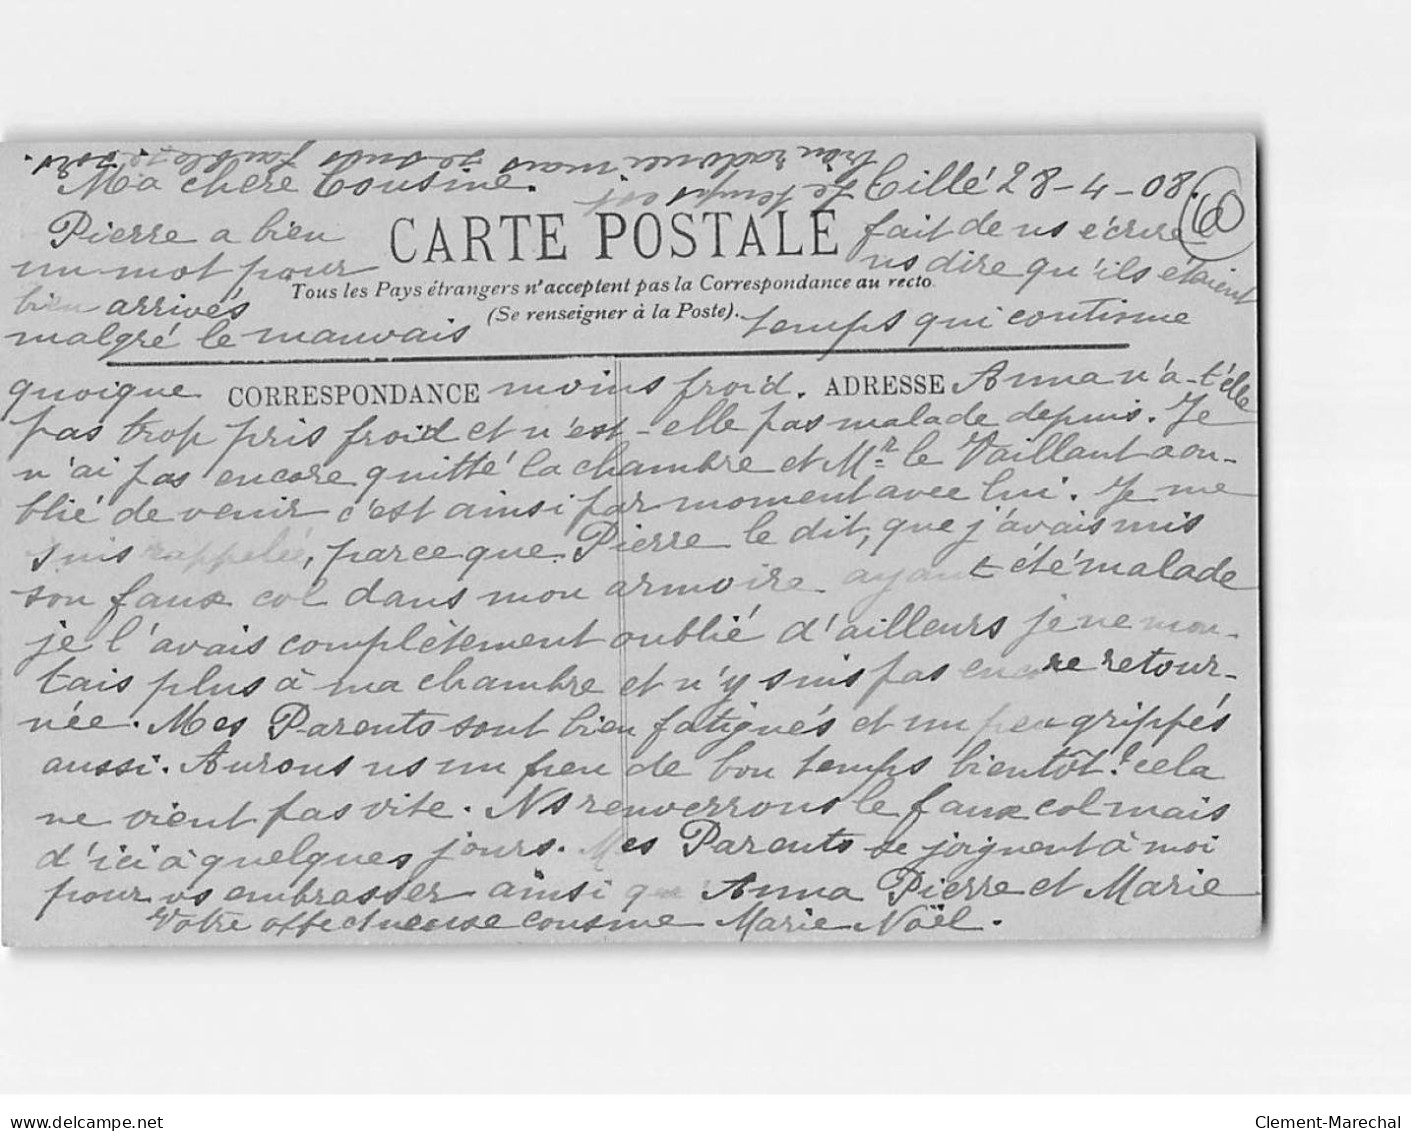 Tillé 28-4-08.
Ma chère Cousine.
60
Pierre a bien fait de ns écrire
CARTE POSTALE
un mot pour ns dire qu'ils étaient
Tous les Pays étrangers n'acceptent pas la Correspondance au recto.
(Se renseigner à la Poste).
bien arrivés
malgré le mauvais temps qui continue
CORRESPONDANCE
ADRESSE
quoique moins froid. Anna n'a-t'elle
pas trop pris froid et n'est-elle pas malade depuis. Je
n'ai pas encore quitté la chambre et Mr le Vaillant a ou-
blié de venir c'est ainsi par moment avec lui. Je me
suis rappelée, parce que Pierre le dit, que j'avais mis
son faux col dans mon armoire ayant été malade
je l'avais complètement oublié d'ailleurs je ne mon-
tais plus à ma chambre et n'y suis pas encore retour-
née. Mes Parents sont bien fatigués et un peu grippés
aussi. Aurons ns un peu de bon temps bientôt? cela
ne vient pas vite. Ns renverrons le faux col mais
d'ici à quelques jours. Mes Parents se joignent à moi
pour vs embrasser ainsi que Anna Pierre et Marie
Votre affectueuse cousine Marie Noël.
Le temps est
bien radouci mais je suis faible, je sors.
www.delcampe.net
Clement-Marechal